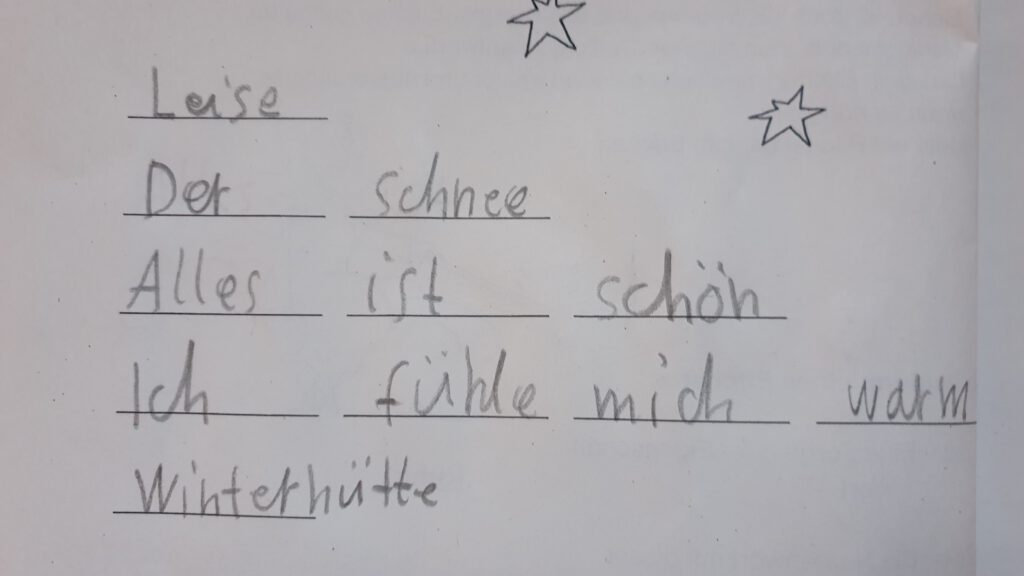 Leise
Der schnee
Alles ist schön
Ich fühle mich warm
Winterhütte